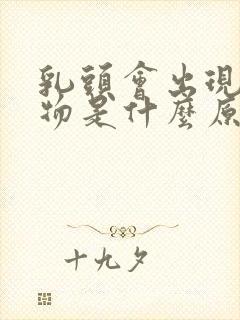 乳頭會出現
物是什麼原
十九夕